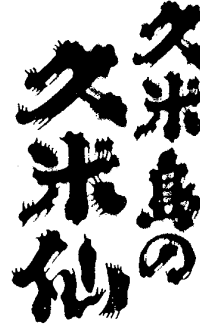 久米島の
久米仙